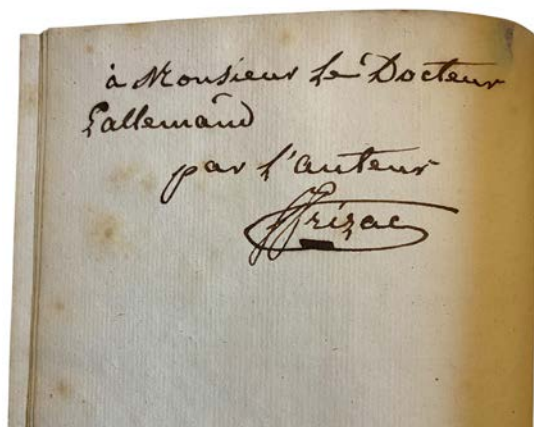 à Monsieur Le Docteur
Lallemand
par l'auteur
Frizac